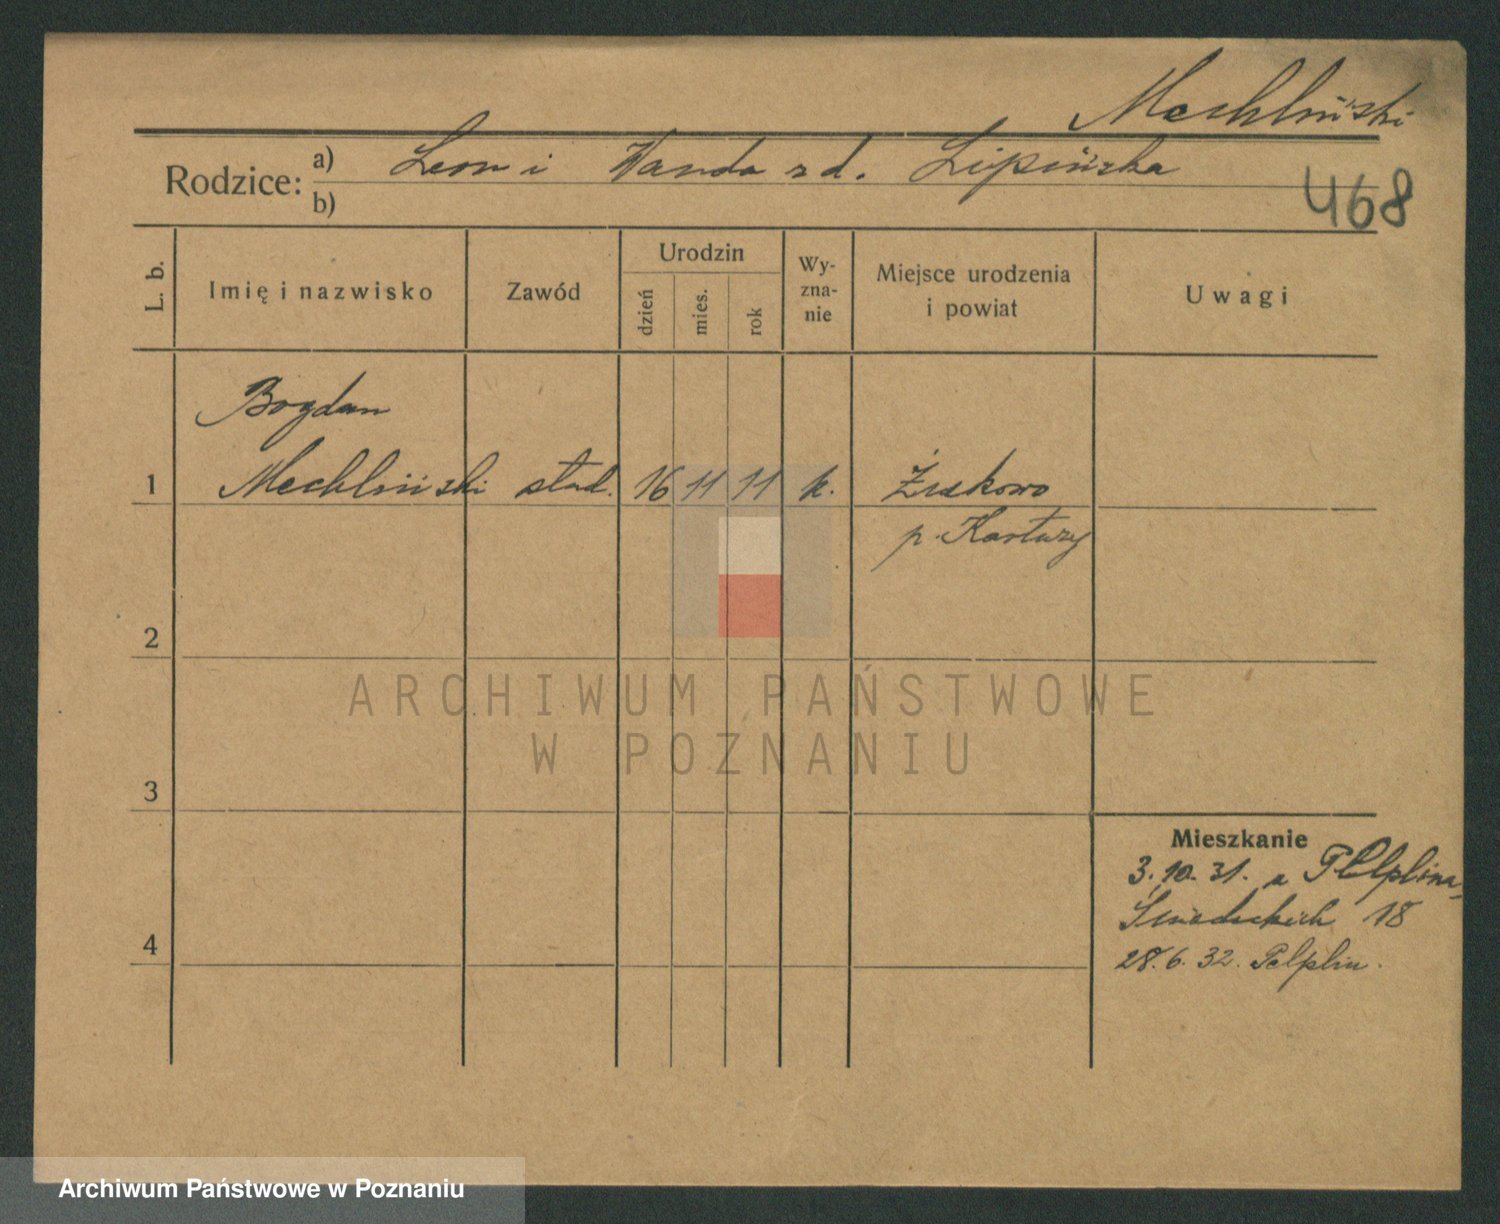 Mechliński
Rodzice: a) Leon i Wanda zd. Lipińska
b)
468
L. b.
Imię i nazwisko
Zawód
Urodzin
dzień
mies.
rok
Wy-
zna-
nie
Miejsce urodzenia
i powiat
Uwagi
Bogdan
1 Mechliński stud. 16 11 11 k. Żukowo
p. Kartuzy
2
ARCHIWUM PAŃSTWOWE
W POZNANIU
3
Mieszkanie
3.10.31. z Pelplina,
Śniadeckich 18
4
28.6.32. Pelplin.
Archiwum Państwowe w Poznaniu